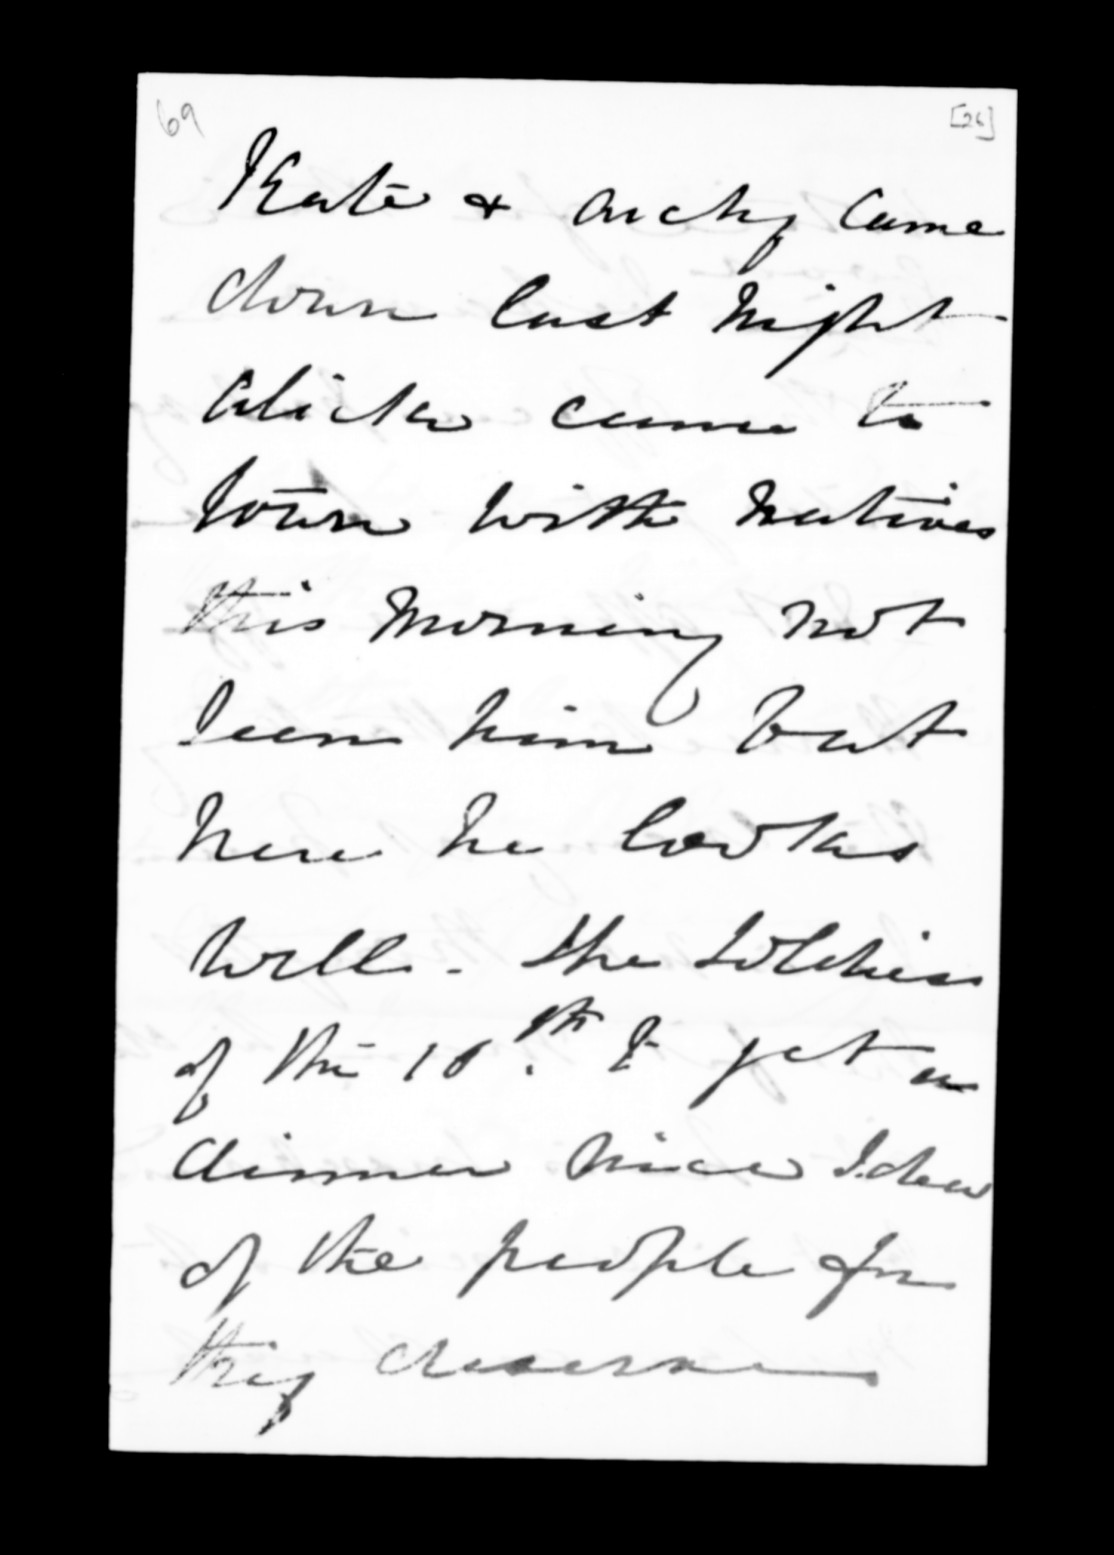 69
[26]
Kate & Archy came
down last night
Alick came to
Town with Natives
this morning not
seen him but
hear he looks
well - the Soldiers
of the 18th to get a
dinner nice Idea
of the people for
they deserve